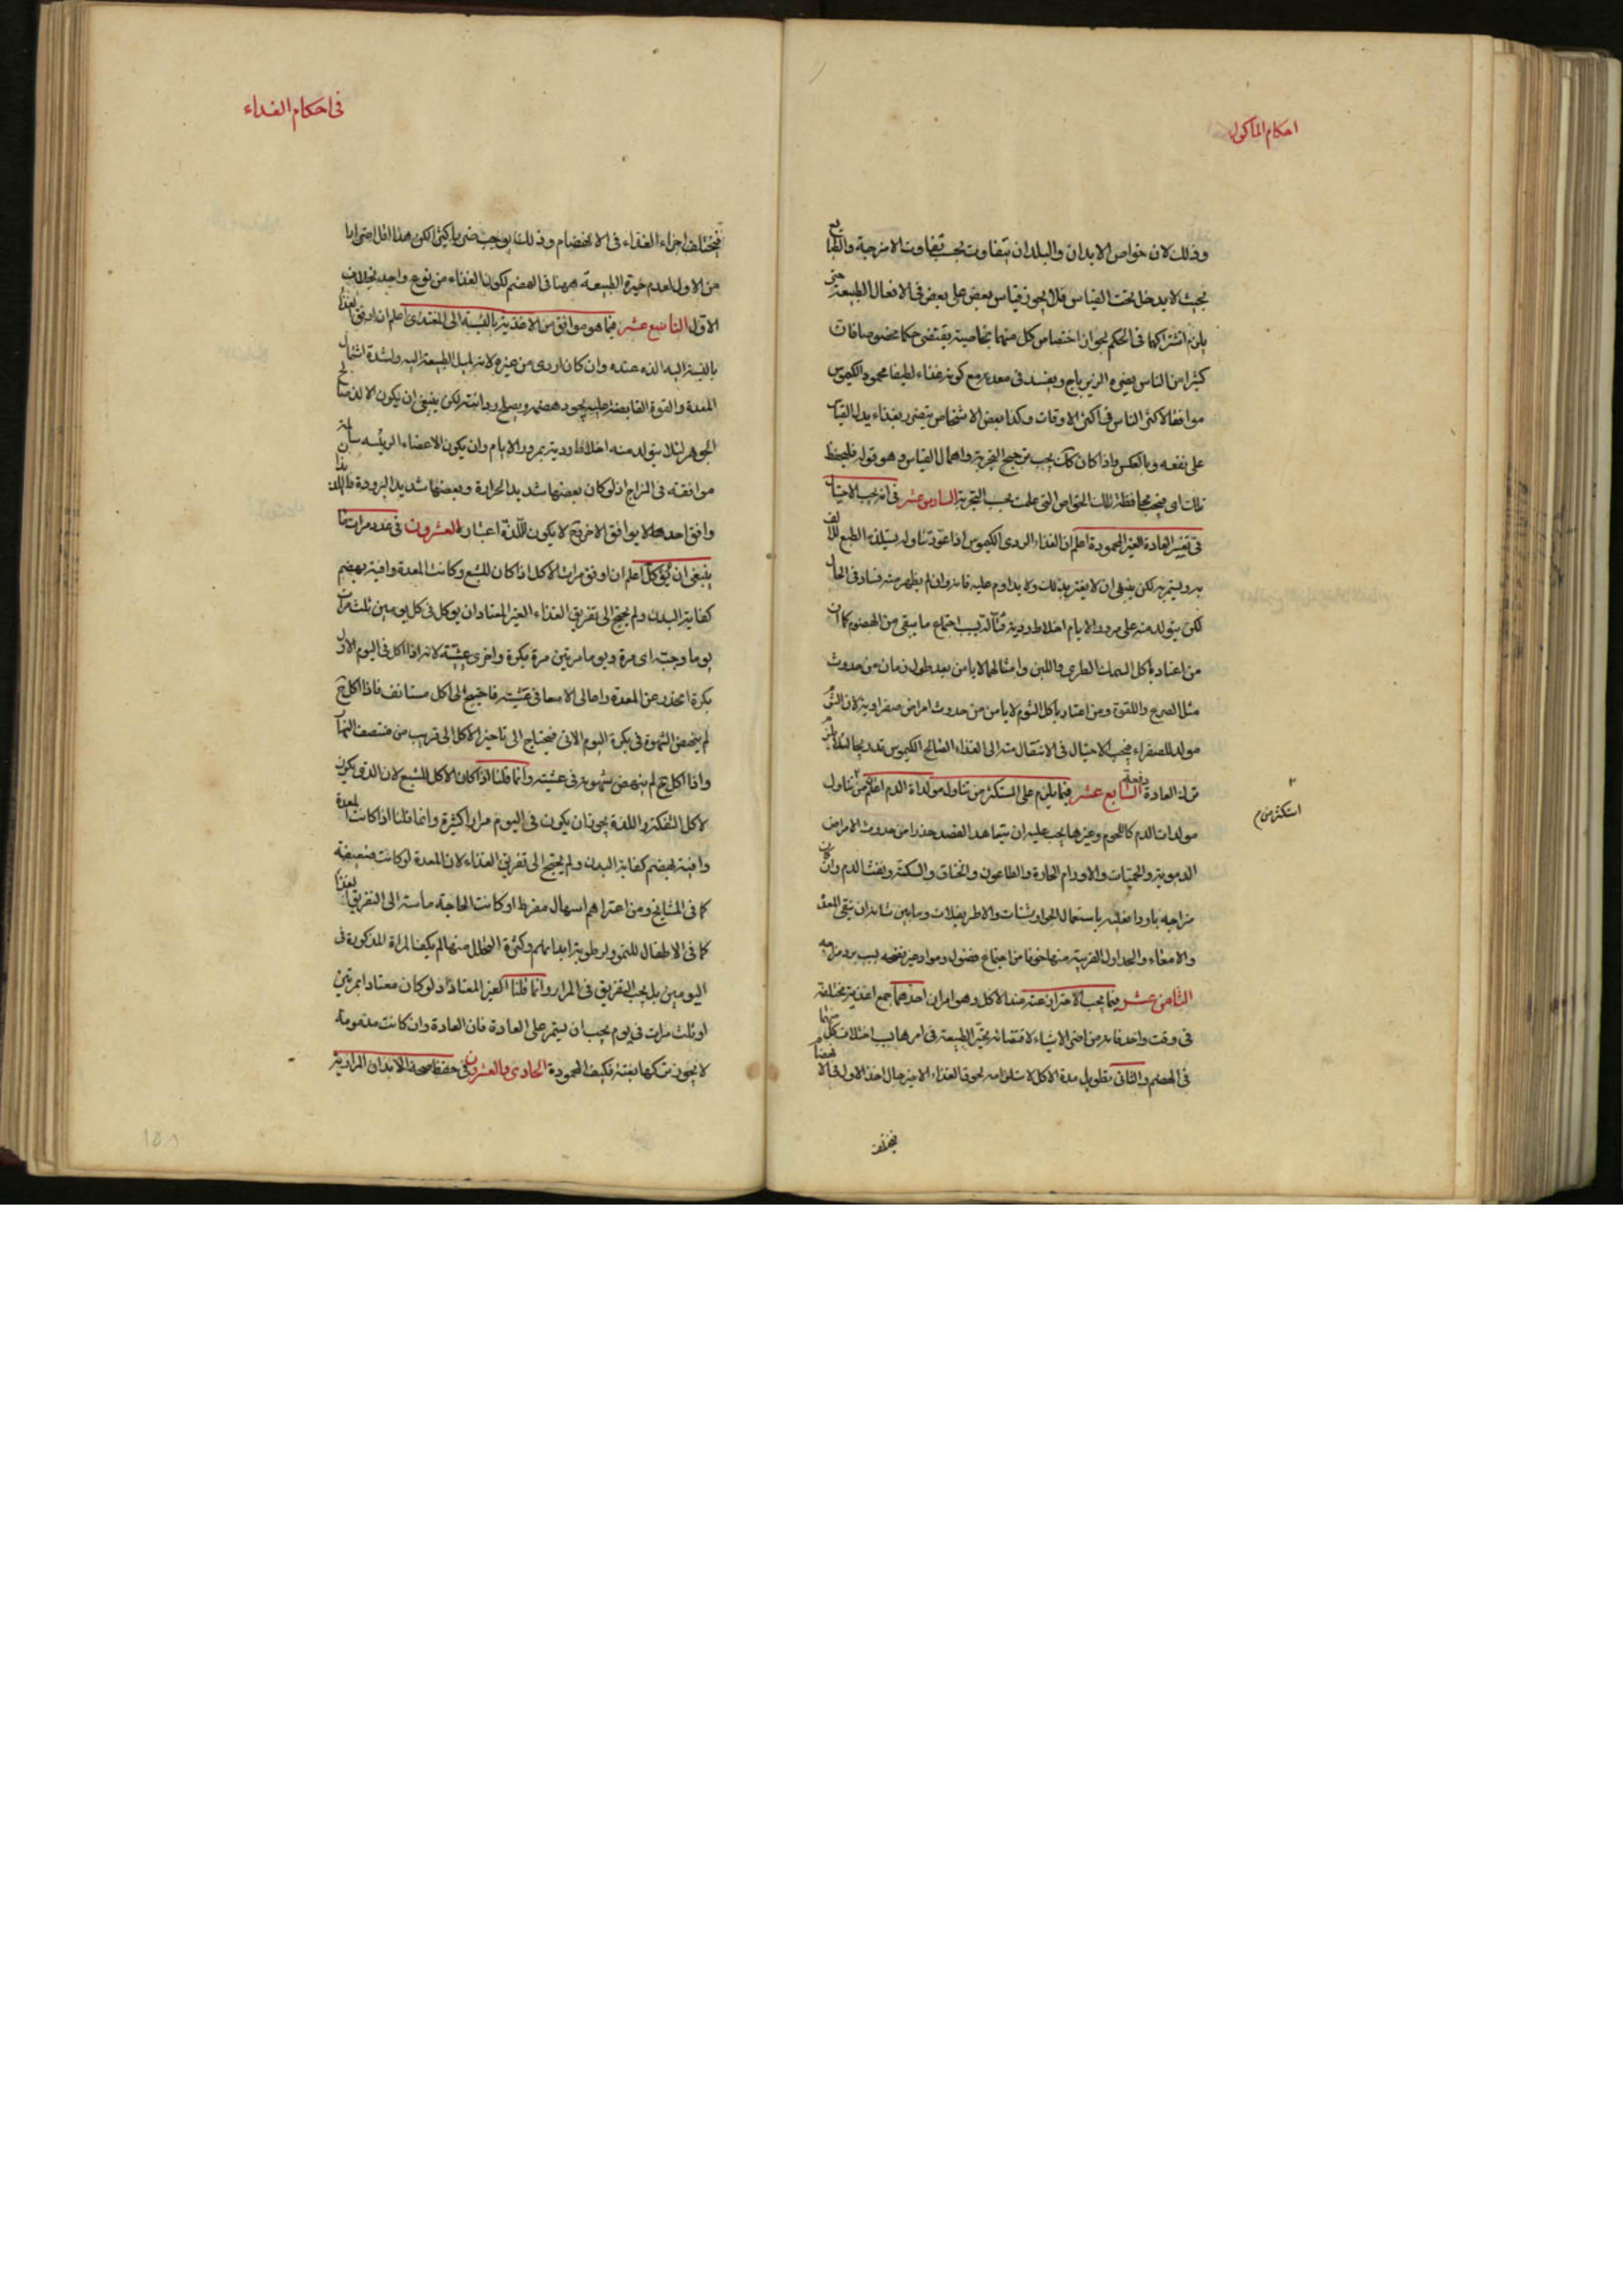 احكام الماكول
وذلك لان خواص الابدان والبلدان تتفاوت بحسب تفاوت الامزجة والطبايع
بحيث لا يدخل تحت القياس فلا يجوز قياس بعض على بعض فى الافعال الطبيعة حتى
يلزم اشتراكهما فى الحكم لجواز اختصاص كل منهما بخاصية يقتضى حكما مخصوصا فان
كثيرا من الناس يضره الزيرباج ويفسد فى معدته مع كونه غذاء لطيفا محمود الكيموس
موافقا لاكثر الناس فى اكثر الاوقات وكذا بعض الاشخاص يتضرر بغذاء يدل القياس
على نفعه وبالعكس واذا كان كذلك يجب ترجيح التجربة واهمال القياس وهو قوله فليحفظ
ذلك اى فيجب محافظة تلك الخواص التى علمت بحسب التجربة السادس عشر فى انه يجب الاحتيال
فى تغيير العادة الغير المحمودة اعلم ان الغذاء الردى الكيموس اذا تعود تناوله يستلذه الطبع للالف
به ويستمريه لكن ينبغى ان لا يغتر بذلك ولا يداوم عليه فانه وان لم يظهر منه فساد فى الحال
لكن يتولد منه على مرور الايام اخلاط ردية قتالة بسبب اجتماع ما يبقى من الهضوم كما ان
من اعتاد باكل السمك الطرى واللبن وامثالهما لا يامن بعد طول زمان من حدوث
مثل الصرع واللقوة ومن اعتاد باكل الثوم لا يامن من حدوث امراض صفراوية لان الثوم
مولد للصفراء فيجب الاحتيال فى الانتقال منه الى الغذاء الصالح الكيموس تدريجا لئلا يلزم
ترك العادة دفعة السابع عشر فيما يلزم على المستكثر من تناول مولدات الدم اعلم ان من تناول
استكثر من م
مولدات الدم كاللحوم وغيرها يجب عليه ان يتعاهد الفصد حذرا من حدوث الامراض
الدموية والحميات والاورام الحادة والطاعون والخناق والسكتة ونفث الدم وان كان
مزاجه باردا فعليه باستعمال الجوارشنات والاطريفلات وما من شانه ان ينقى المعدة
والامعاء والجداول القريبة منها خوفا من اجتماع فضول ومواد غير نضجه بسبب برد مزاجه
الثامن عشر فيما يجب الاحتراز عنه عند الاكل وهو امران احدهما جمع اغذية مختلفة
فى وقت واحد فانه من اضر الاشياء لاقتضائه تحير الطبيعة فى امرها بسبب اختلاف كل منهما
فى الهضم والثانى تطويل مدة الاكل لاستلزامه لحوق الغذاء الاخير حال اخذ الاول فى الانهضام
فيختلف
فى احكام الغذاء
فيختلف اجزاء الغذاء فى الانهضام وذلك يوجب ضررا كثيرا لكن هذا اقل اضرارا
من الاول لعدم حيرة الطبيعة ههنا فى الهضم لكون الغذاء من نوع واحد بخلاف
الاول التاسع عشر فيما هو موافق من الاغذية بالنسبة الى المغتذى اعلم ان اوفق الغذا
بالنسبة اليه الذه عنده وان كان اردى من غيره لانه لميل الطبيعة اليه ولشدة اشتمال
المعدة والقوة القابضة عليه يجود هضمه ويصلح رداءته لكن ينبغى ان يكون الالذ صالح
الجوهر لئلا يتولد منه اخلاط ردية بمرور الايام وان يكون الاعضاء الرئيسه سالمة
موافقة فى المزاج اذ لو كان بعضها شديد الحرارة وبعضها شديد البرودة فالالذ اذا
وافق احدهما لا يوافق الاخر فح لا يكون للالذ اعتبار العشرون فى عدد مرات ما
ينبغى ان يؤكل اعلم ان اوفق مرات الاكل اذا كان للشبع وكانت المعدة وافية بهضم
كفاية البدن ولم يحتج الى تفريق الغذاء الغير المعتاد ان يوكل فى كل يومين ثلث مرات
يوما وجبة اى مرة ويوما مرتين مرة بكرة واخرى عشية لانه اذا اكل فى اليوم الاول
بكرة انحدر عن المعدة واعالى الامعا فى عشيته فاحتيج الى اكل مستانف فاذا اكل ح
لم ينهض الشهوة فى بكرة اليوم الاتى فيحتاج الى تاخير الاكل الى قريب من منتصف النهار
واذا اكل ح لم ينهض شهوته فى عشيته وانما قلنا اذا كان الاكل للشبع لان الذى يكون
لاكل التفكه واللذة يجوز ان يكون فى اليوم مرارا كثيرة وانما قلنا اذا كانت المعدة
وافية بهضم كفاية البدن ولم يحتج الى تفريق الغذاء لان المعدة لو كانت ضعيفة
كما فى المشايخ ومن اعتراهم اسهال مفرط او كانت الحاجة ماسة الى التفريق الغذا
كما فى الاطفال للنمو ولرطوبة ابدانهم وكثرة التحلل منها لم يكف المراة المذكورة فى
اليومين بل يجب التفريق فى المرار وانما قلنا الغير المعتاد اذ لو كان معتادا بمرتين
او ثلث مرات فى يوم يجب ان يستمر على العادة فان العادة وان كانت مذمومة
لا يجوز تركها بغتة فكيف المحمودة الحادى والعشرون فى حفظ صحة الابدان المرارية